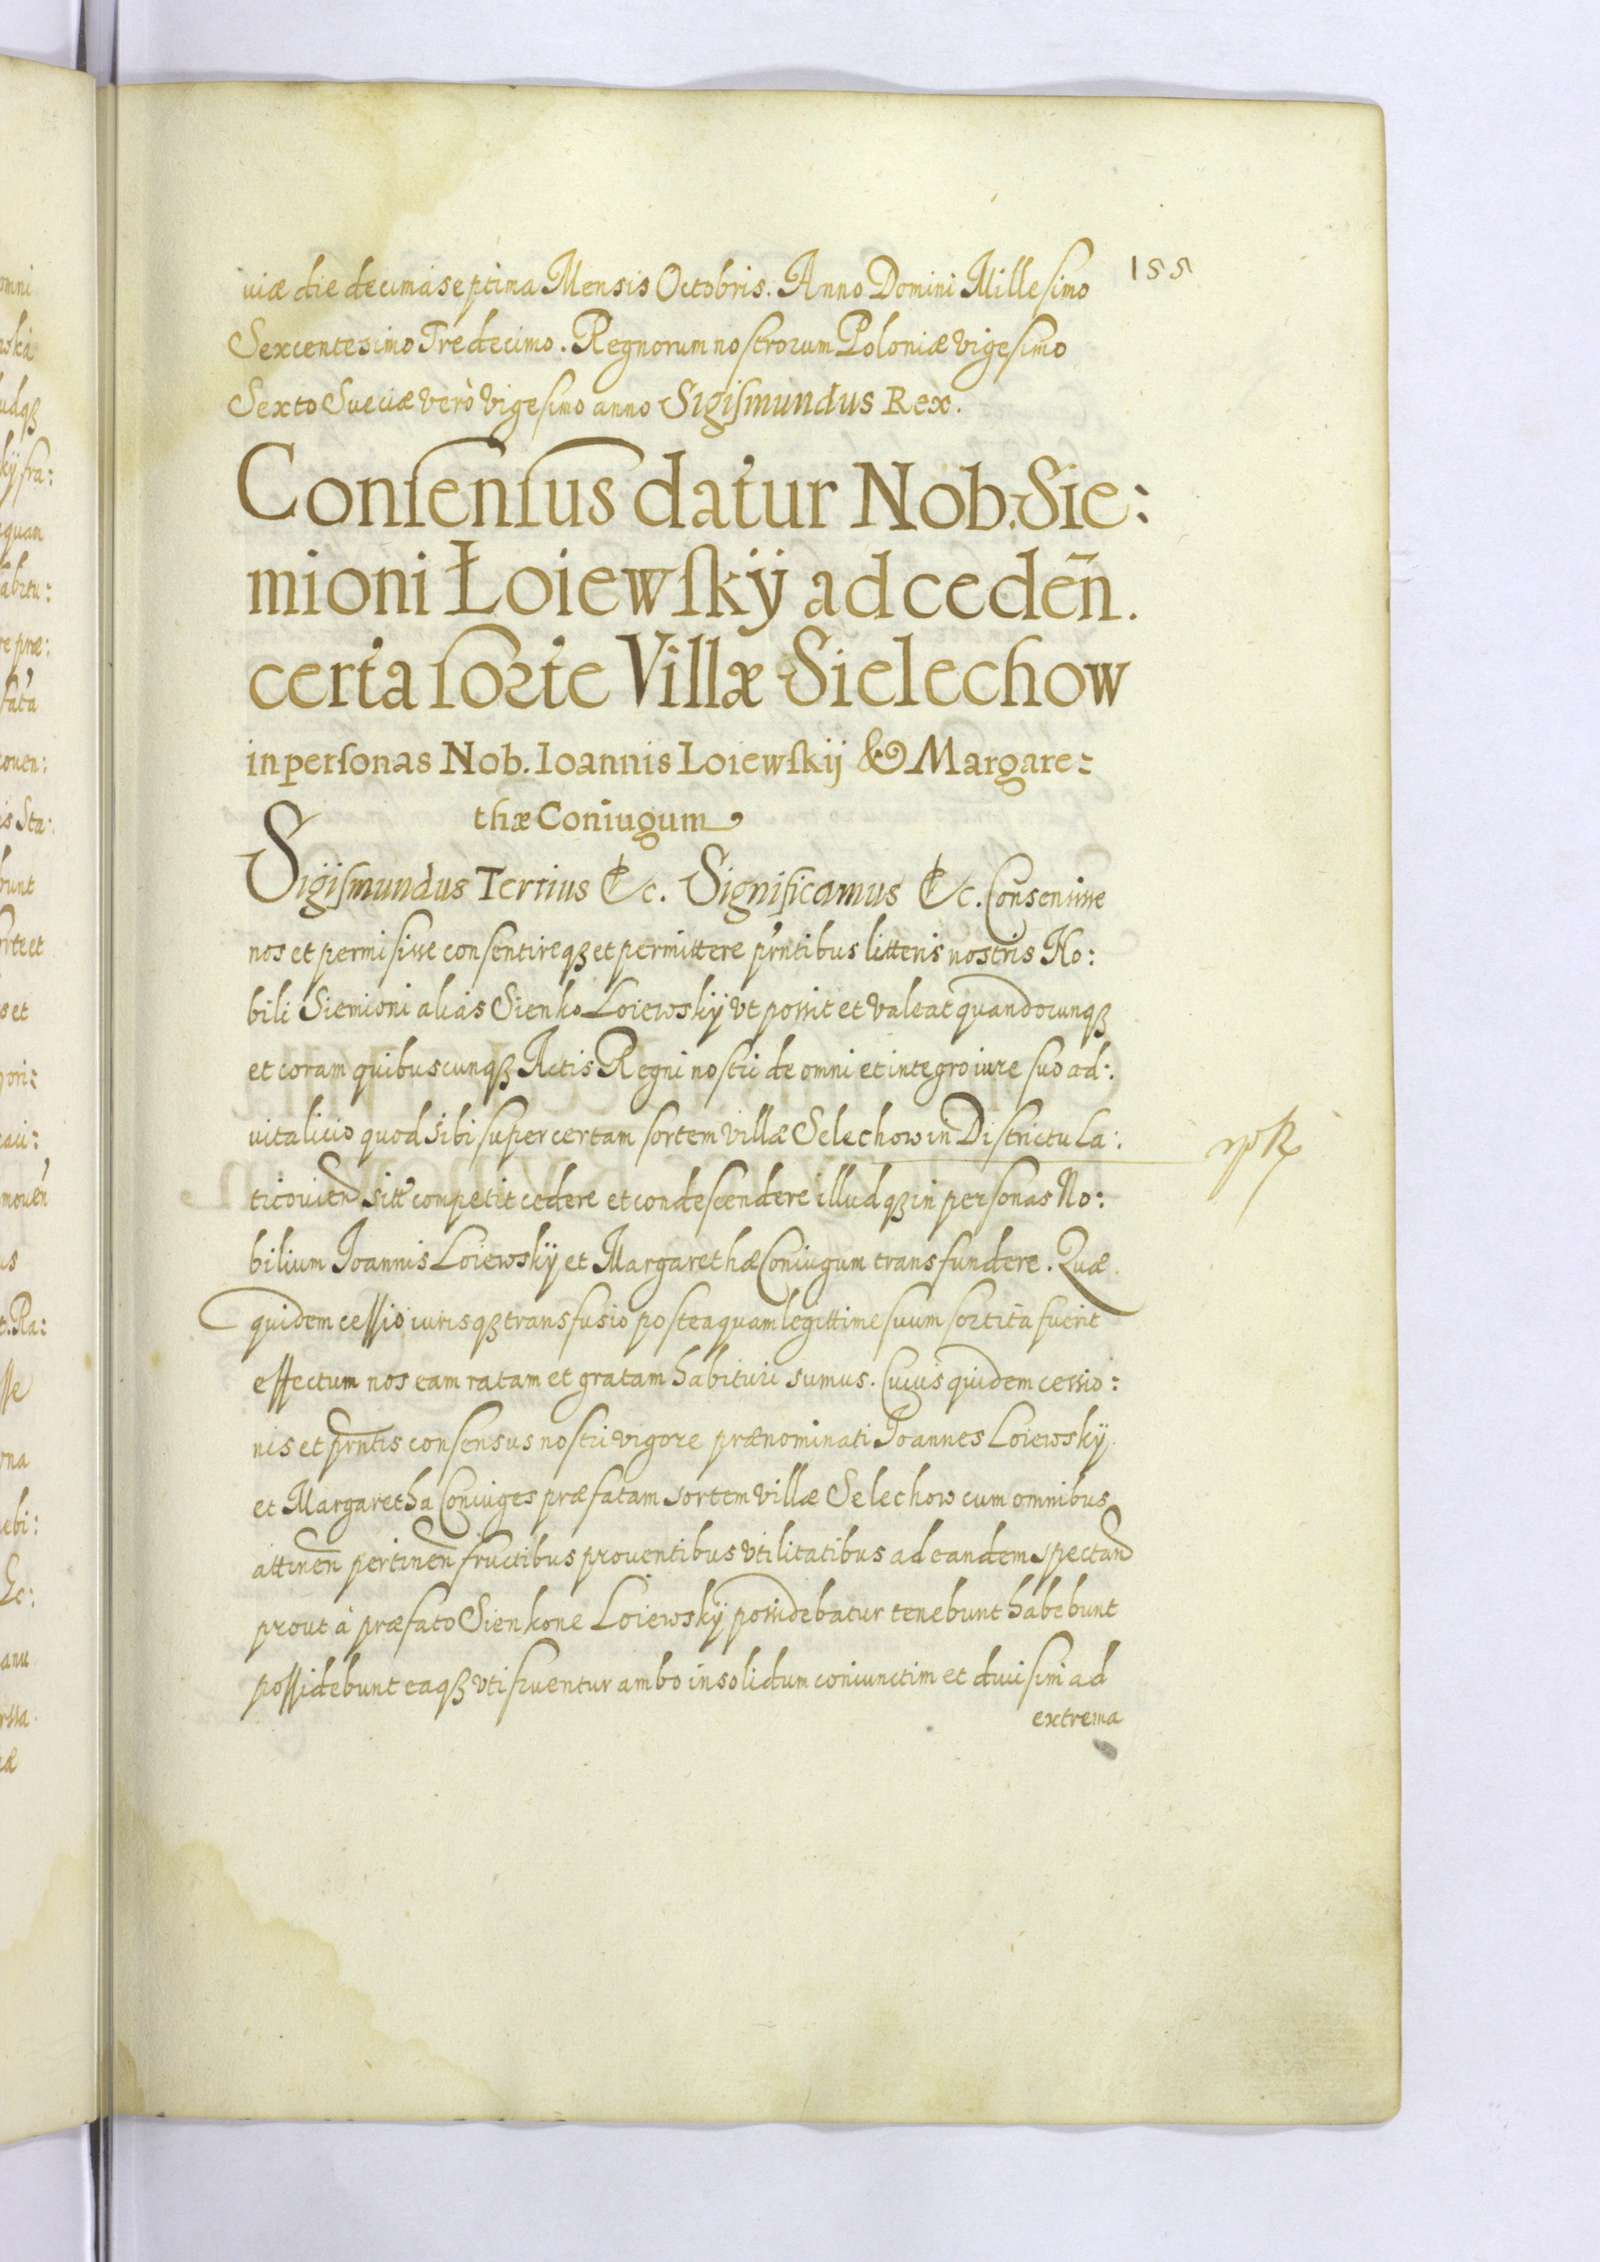 155
uiæ die decima septima Mensis Octobris. Anno Domini Millesimo
Sexcentesimo Tredecimo. Regnorum nostrorum Poloniæ vigesimo
Sexto Sueciæ verò vigesimo anno Sigismundus Rex.
Consensus datur Nob. Sie:
mioni Łoiewskÿ ad cedeñ.
certa sorte Villæ Sielechow
in personas Nob. Ioannis Loiewskij & Margare:
thæ Coniugum
Sigismundus Tertius &c. Significamus &c. Consensisse
nos et permisisse consentireqꝫ et permittere pr̃ntibus litteris nostris No:
bili Siemioni alias Sienko Loiewskÿ vt possit et valeat quandocunqꝫ
et coram quibuscunqꝫ Actis Regni nostri de omni et integro iure suo ad:
vitalicio quod sibi super certam sortem villæ Selechow in Districtu La:
ticouień sitt competit cedere et condescendere illudqꝫ in personas No:
bilium Joannis Loiewskÿ et Margarethæ Coniugum transfundere. Quæ
quidem cessio iurisqꝫ transfusio posteaquam legittime suum sortita fuerit
effectum nos eam ratam et gratam habituri sumus. Cuius quidem cessio:
nis et pr̃ntis consensus nostri vigore prænominati Joannes Loiewskÿ
et Margaretha Coniuges præfatam sortem villæ Selechow cum omnibus
attineñ pertineñ fructibus prouentibus vtilitatibus ad eandem spectan̄
prout à præfato Sienkone Loiewskÿ possidebatur tenebunt habebunt
possidebunt eaqꝫ vti fruentur ambo in solidum coniunctim et diuisim ad
extrema